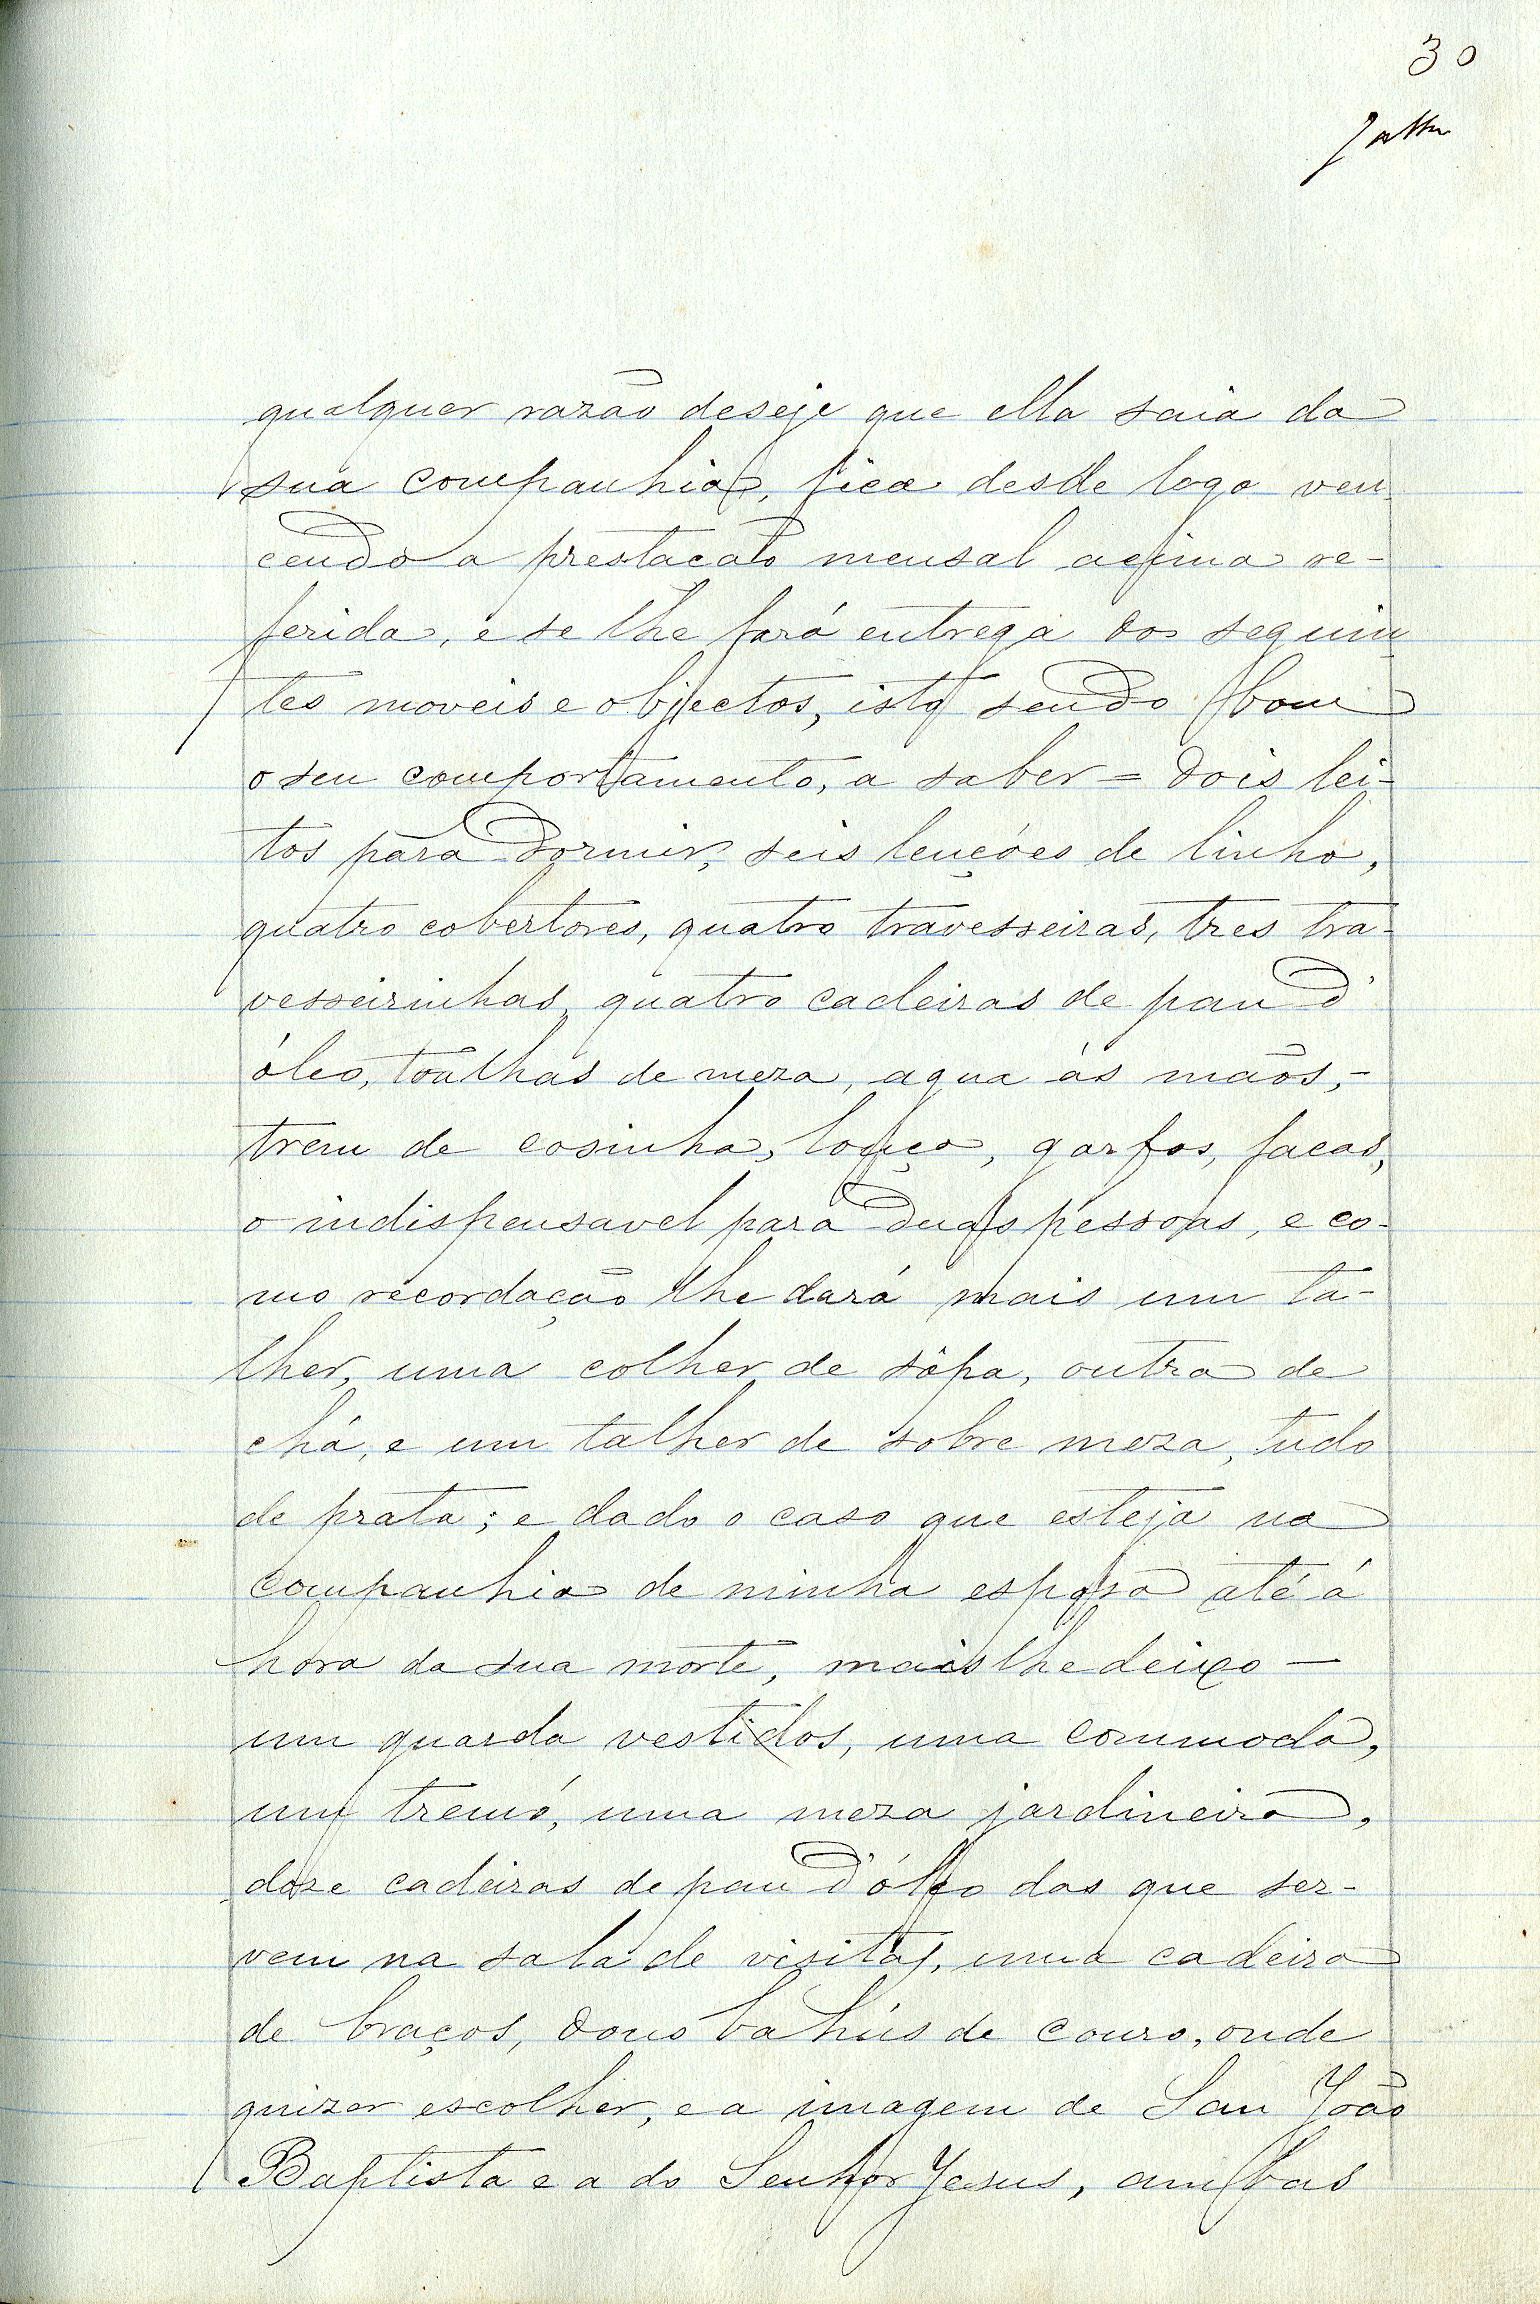 30
qualquer razão deseje que ella saia da
sua companhia, fica desde logo ven-
cendo a prestacão mensal acima re-
ferida, e se lhe fará entrega dos seguin
tes moveis e objectos, isto sendo bom
o seu comportamento, a saber = dois lei-
tos para dormir, seis lençóes de linho,
quatro cobertores, quatro travesseiras, tres tra-
vesseirinhas, quatro cadeiras de pau d'
óleo, toalhas de meza, agua ás mãos, -
trem de cosinha, louça, garfos, facas,
o indispensavel para duas pessoas, e co-
mo recordação lhe dará mais um ta-
lher, uma colher de sôpa, outra de
chá, e um talher de sobre meza, tudo
de prata; e dado o caso que esteja na
companhia de minha esposa até á
hora da sua morte, mais lhe deixo —
um guarda vestidos, uma commoda,
um tremó, uma meza jardineira,
doze cadeiras de pau d'óleo das que ser-
vem na sala de visitas, uma cadeira
de braços, dous bahús de couro, onde
quizer escolher, e a imagem de San João
Baptista e a do Senhor Jesus, ambas